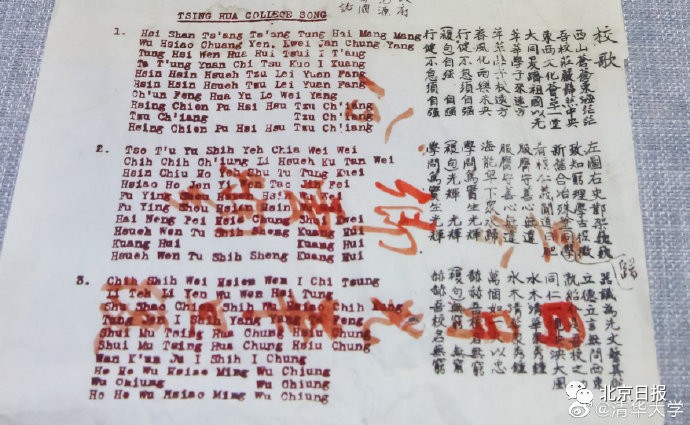 TSING HUA COLLEGE SONG
1. Hsi Shan Ts'ang Ts'ang Tung Hai Mang Mang
Wu Hsiao Chuang Yen, Kwei Jan Chung Yang
Tung Hsi Wen Hua Hui Tsui I T'ang
Ta T'ung Yuan Chi Tsu Kuo I Kuang
Hsin Hsin Hsueh Tzu Lei Yuan Fang
Hsin Hsin Hsueh Tzu Lei Yuan Fang
Ch'un Feng Hua Yu Lo Wei Yang
Hsing Chien Pu Hsi Hsu Tzu Ch'iang
Tzu Ch'iang Tzu Ch'iang
Hsing Chien Pu Hsi Hsu Tzu Ch'iang
2. Tso T'u Yu Shih Yeh Chia Wei Wei
Chih Chih Ch'iung Li Hsueh Ku Tan Wei
Hsin Chiu Ho Yeh Shu Tu Tung Kuei
Hsiao Ho Jen Yi Wen Tao Jih Fei
Fu Ying Shou Hsin
Fu Ying Shou Hsin
Hai Neng Pei Hsia Chung Shui Kwei
Hsueh Wen Tu Shih Sheng Kuang Hui
Kuang Hui Kuang Hui
Hsueh Wen Tu Shih Sheng Kuang Hui
3. Chih Shih Wei Hsien Wen I Chi Tsung
Li Teh Li Yen Wu Wen Hsi Tung
Shu Shao Chieh Shih Wu Hsiao Chih Kung
Tung Jen I Shih Yang Yang Ta Feng
Shui Mu Tsing Hua Chung Hsiu Chung
Shui Mu Tsing Hua Chung Hsiu Chung
Wan K'un Ju I Shih I Chung
Ho Ho Wu Hsiao Ming Wu Chiung
Wu Chiung Wu Chiung
Ho Ho Wu Hsiao Ming Wu Chiung
校歌
西山蒼蒼東海茫茫
吾校莊嚴巋然中央
東西文化薈萃一堂
大同爰躋祖國以光
莘莘學子來遠方
莘莘學子來遠方
春風化雨樂未央
行健不息須自强
複句自强 自强
行健不息須自强
左圖右史鄴架巍巍
致知窮理學古探微
新舊合冶殊途同歸
肴核仁義聞道日肥
服膺守善心無違
服膺守善心無違
海能卑下衆水歸
學問篤實生光輝
複句光輝 光輝
學問篤實生光輝
器識為先文藝其從
立德立言無問西東
孰紹吾校之
同仁泱大風
水木清華衆秀鍾
水木清華衆秀鍾
萬悃如一矢以忠
赫赫吾校名無窮
複句無窮 無窮
赫赫吾校名無窮
北京日报
@清华大学